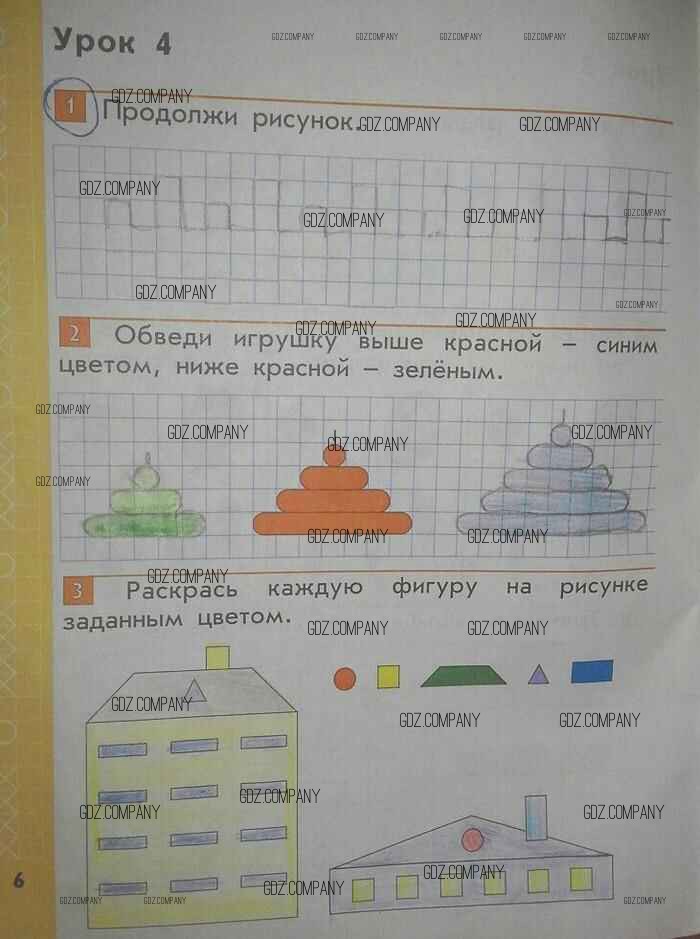 Урок 4
GDZ.COMPANY GDZ.COMPANY GDZ.COMPANY GDZ.COMPANY GDZ.COMPANY
1 Продолжи рисунок.
GDZ.COMPANY GDZ.COMPANY GDZ.COMPANY
GDZ.COMPANY GDZ.COMPANY GDZ.COMPANY GDZ.COMPANY
GDZ.COMPANY GDZ.COMPANY
GDZ.COMPANY GDZ.COMPANY
2 Обведи игрушку выше красной – синим
цветом, ниже красной – зелёным.
GDZ.COMPANY
GDZ.COMPANY GDZ.COMPANY GDZ.COMPANY
GDZ.COMPANY
GDZ.COMPANY GDZ.COMPANY
GDZ.COMPANY
3 Раскрась каждую фигуру на рисунке
заданным цветом.
GDZ.COMPANY GDZ.COMPANY
GDZ.COMPANY GDZ.COMPANY GDZ.COMPANY
GDZ.COMPANY GDZ.COMPANY GDZ.COMPANY
6
GDZ.COMPANY GDZ.COMPANY
GDZ.COMPANY GDZ.COMPANY GDZ.COMPANY